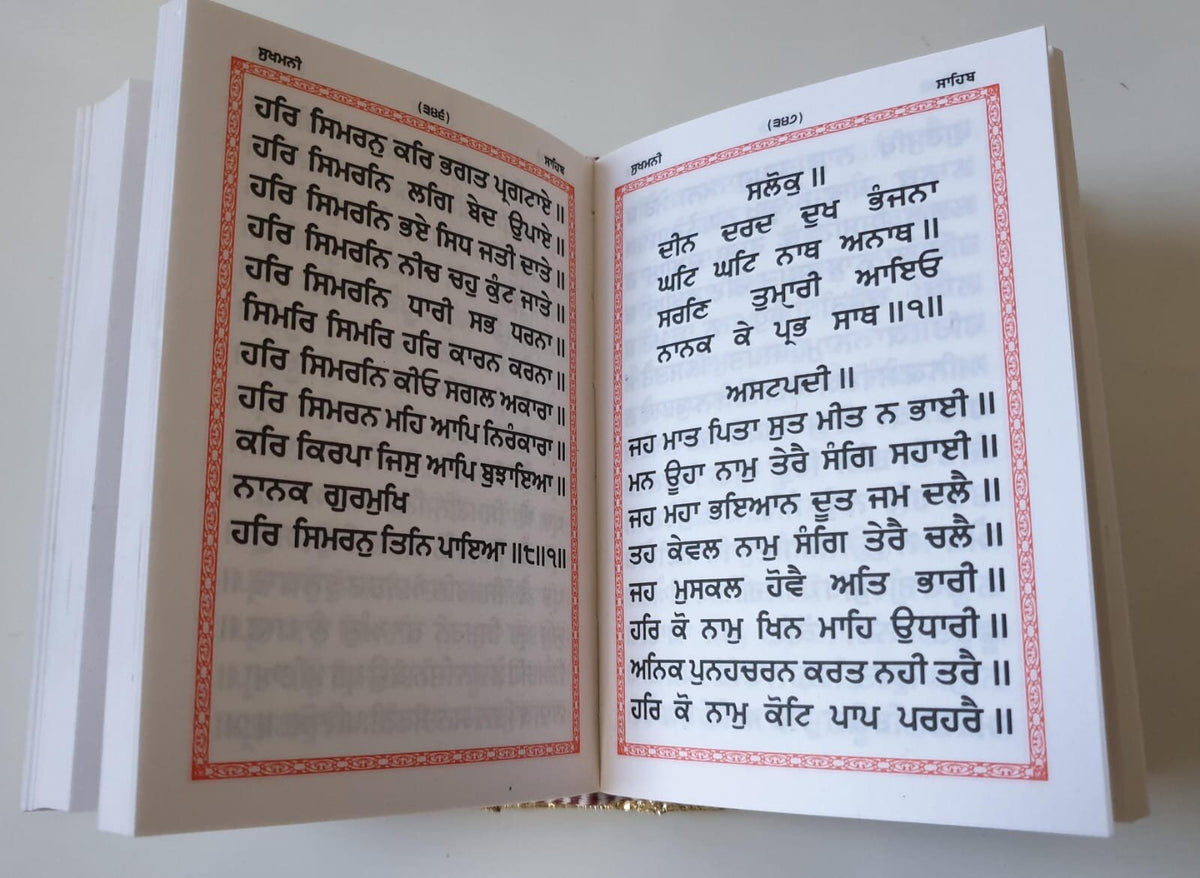 ਸੁਖਮਨੀ
(੩੪੬)
ਸਾਹਿਬ
ਹਰਿ ਸਿਮਰਨੁ ਕਰਿ ਭਗਤ ਪ੍ਰਗਟਾਏ॥
ਹਰਿ ਸਿਮਰਨਿ ਲਗਿ ਬੇਦ ਉਪਾਏ॥
ਹਰਿ ਸਿਮਰਨਿ ਭਏ ਸਿਧ ਜਤੀ ਦਾਤੇ॥
ਹਰਿ ਸਿਮਰਨਿ ਨੀਚ ਚਹੁ ਕੁੰਟ ਜਾਤੇ॥
ਹਰਿ ਸਿਮਰਨਿ ਧਾਰੀ ਸਭ ਧਰਨਾ॥
ਸਿਮਰਿ ਸਿਮਰਿ ਹਰਿ ਕਾਰਨ ਕਰਨਾ॥
ਹਰਿ ਸਿਮਰਨਿ ਕੀਓ ਸਗਲ ਅਕਾਰਾ॥
ਹਰਿ ਸਿਮਰਨ ਮਹਿ ਆਪਿ ਨਿਰੰਕਾਰਾ॥
ਕਰਿ ਕਿਰਪਾ ਜਿਸੁ ਆਪਿ ਬੁਝਾਇਆ॥
ਨਾਨਕ ਗੁਰਮੁਖਿ
ਹਰਿ ਸਿਮਰਨੁ ਤਿਨਿ ਪਾਇਆ॥੮॥੧॥
ਸੁਖਮਨੀ
(੩੪੭)
ਸਾਹਿਬ
ਸਲੋਕੁ॥
ਦੀਨ ਦਰਦ ਦੁਖ ਭੰਜਨਾ
ਘਟਿ ਘਟਿ ਨਾਥ ਅਨਾਥ॥
ਸਰਣਿ ਤੁਮ੍ਹਾਰੀ ਆਇਓ
ਨਾਨਕ ਕੇ ਪ੍ਰਭ ਸਾਥ॥੧॥
ਅਸਟਪਦੀ॥
ਜਹ ਮਾਤ ਪਿਤਾ ਸੁਤ ਮੀਤ ਨ ਭਾਈ॥
ਮਨ ਊਹਾ ਨਾਮੁ ਤੇਰੈ ਸੰਗਿ ਸਹਾਈ॥
ਜਹ ਮਹਾ ਭਇਆਨ ਦੂਤ ਜਮ ਦਲੈ॥
ਤਹ ਕੇਵਲ ਨਾਮੁ ਸੰਗਿ ਤੇਰੈ ਚਲੈ॥
ਜਹ ਮੁਸਕਲ ਹੋਵੈ ਅਤਿ ਭਾਰੀ॥
ਹਰਿ ਕੋ ਨਾਮੁ ਖਿਨ ਮਾਹਿ ਉਧਾਰੀ॥
ਅਨਿਕ ਪੁਨਹਚਰਨ ਕਰਤ ਨਹੀ ਤਰੈ॥
ਹਰਿ ਕੋ ਨਾਮੁ ਕੋਟਿ ਪਾਪ ਪਰਹਰੈ॥